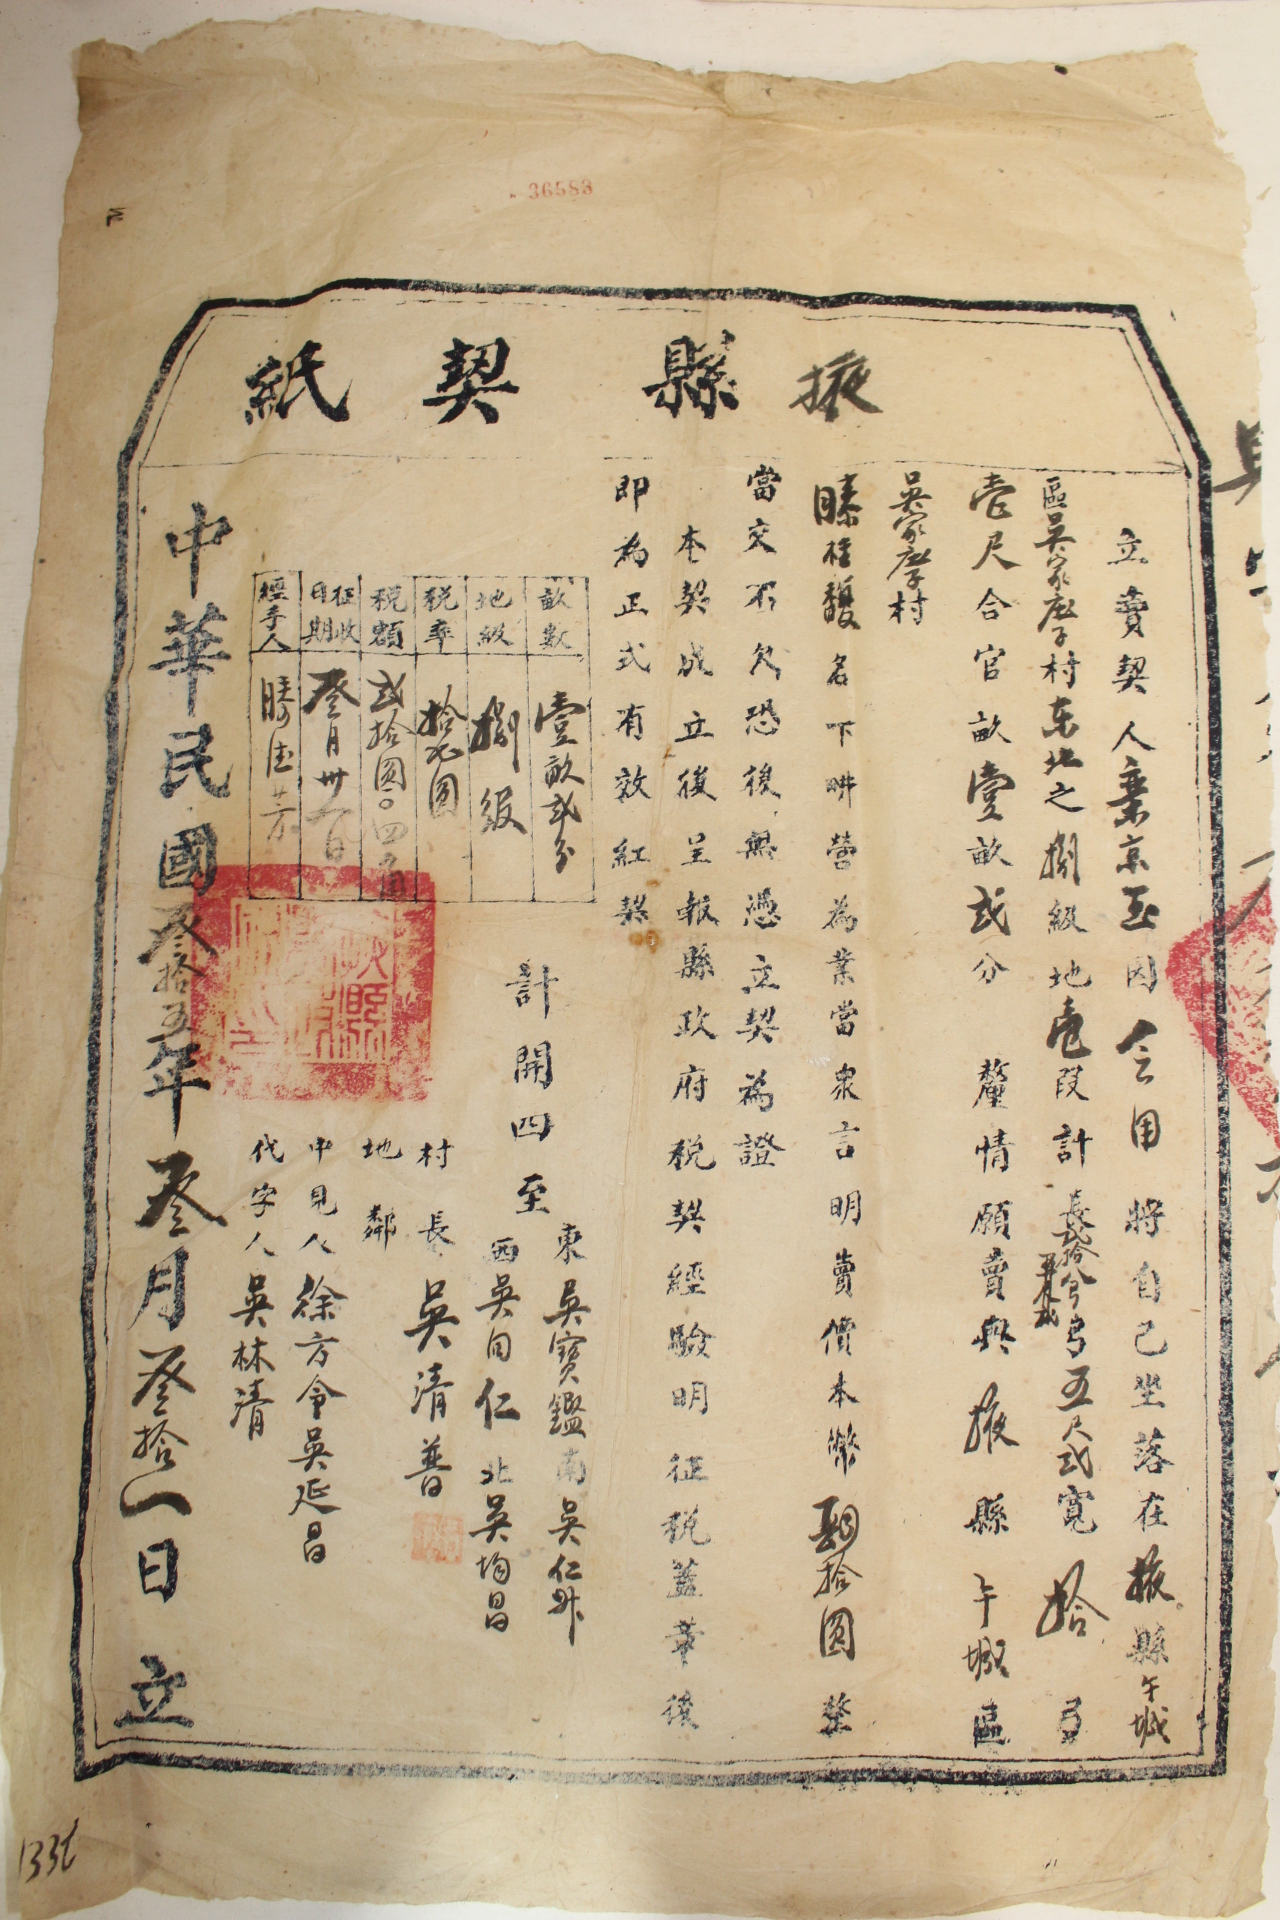 36583
掖縣契紙
立賣契人秉京玉因今用將自己坐落在掖縣午城
區吳家庄子村東北之捌級地壱段計長弍拾弓五尺弍寬拾弓
壱尺合官畝壹畝弍分釐情願賣與掖縣午城區
吳家庄子村
滕桂馥名下畊營為業當衆言明賣價本幣拾圓整
當交不欠恐後無憑立契為證
本契成立後呈報縣政府稅契經驗明征稅蓋章後
即為正式有效紅契
畝數 壹畝弍分
地級 捌級
稅率 拾圓
稅額 弍拾圓〇四角
征收日期 叁月卅一日
經手人
計開四至
東吳寶鑑南吳仁
西吳自仁北吳均昌
村長吳清普
地鄰
中見人徐方令吳延昌
代字人吳林清
中華民國叁拾五年叁月叁拾一日立